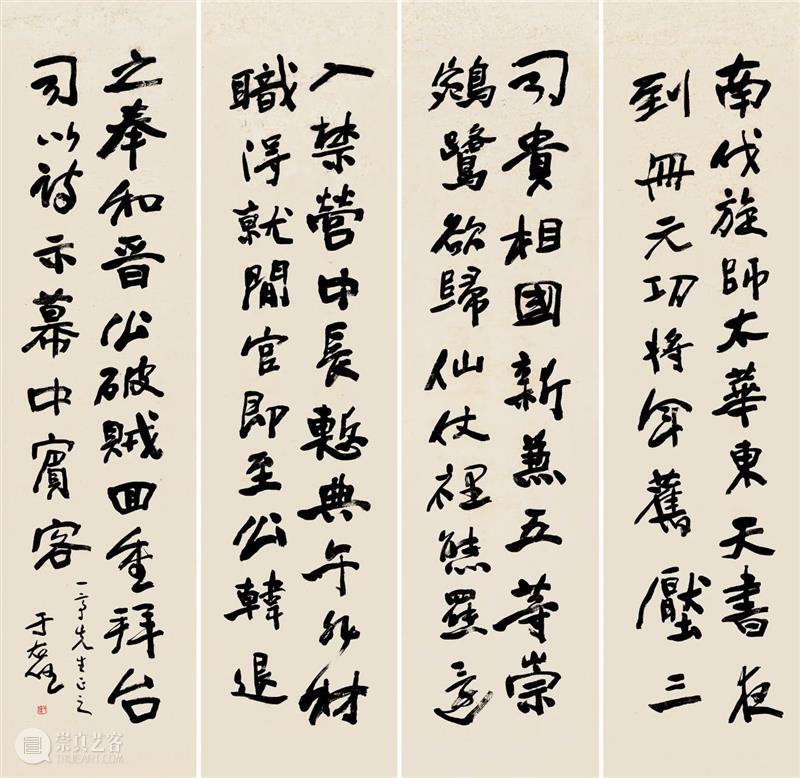 南伐旋師太華東天書夜
到冊元功將軍舊壓三
司貴相國新兼五等崇
鵷鷺欲歸仙仗裡熊羆還
入禁營中長慙典午非材
職得就閒官即至公韓退
之奉和晉公破賊回重拜台
司以詩示幕中賓客
先生正之
于右任
崇真艺客
TRUEART.COM